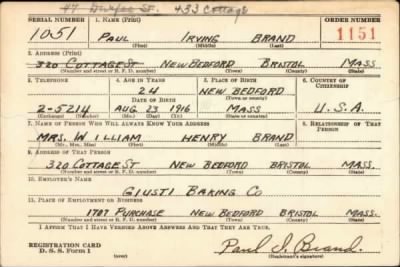 47 Dunfee St. 433 Cottage
SERIAL NUMBER 1. NAME (Print) ORDER NUMBER
1051 PAUL IRVING BRAND 1151
(First) (Middle) (Last)
2. ADDRESS (Print)
320 COTTAGE ST NEW BEDFORD BRISTOL MASS
(Number and street or R. F. D. number) (Town) (County) (State)
3. TELEPHONE 4. AGE IN YEARS 5. PLACE OF BIRTH 6. COUNTRY OF CITIZENSHIP
24 NEW BEDFORD
DATE OF BIRTH (Town or county)
2-5214 AUG 23 1916 MASS U.S.A.
(Exchange) (Number) (Mo.) (Day) (Yr.) (State or country)
7. NAME OF PERSON WHO WILL ALWAYS KNOW YOUR ADDRESS 8. RELATIONSHIP OF THAT PERSON
MRS. WILLIAM HENRY BRAND
(Mr., Mrs., Miss) (First) (Middle) (Last)
9. ADDRESS OF THAT PERSON
320 COTTAGE ST NEW BEDFORD BRISTOL MASS.
(Number and street or R. F. D. number) (Town) (County) (State)
10. EMPLOYER'S NAME
GIUSTI BAKING CO
11. PLACE OF EMPLOYMENT OR BUSINESS
1707 PURCHASE NEW BEDFORD BRISTOL MASS.
(Number and street or R. F. D. number) (Town) (County) (State)
I AFFIRM THAT I HAVE VERIFIED ABOVE ANSWERS AND THAT THEY ARE TRUE.
REGISTRATION CARD
D. S. S. Form 1
Paul I. Brand.
(Registrant's signature)